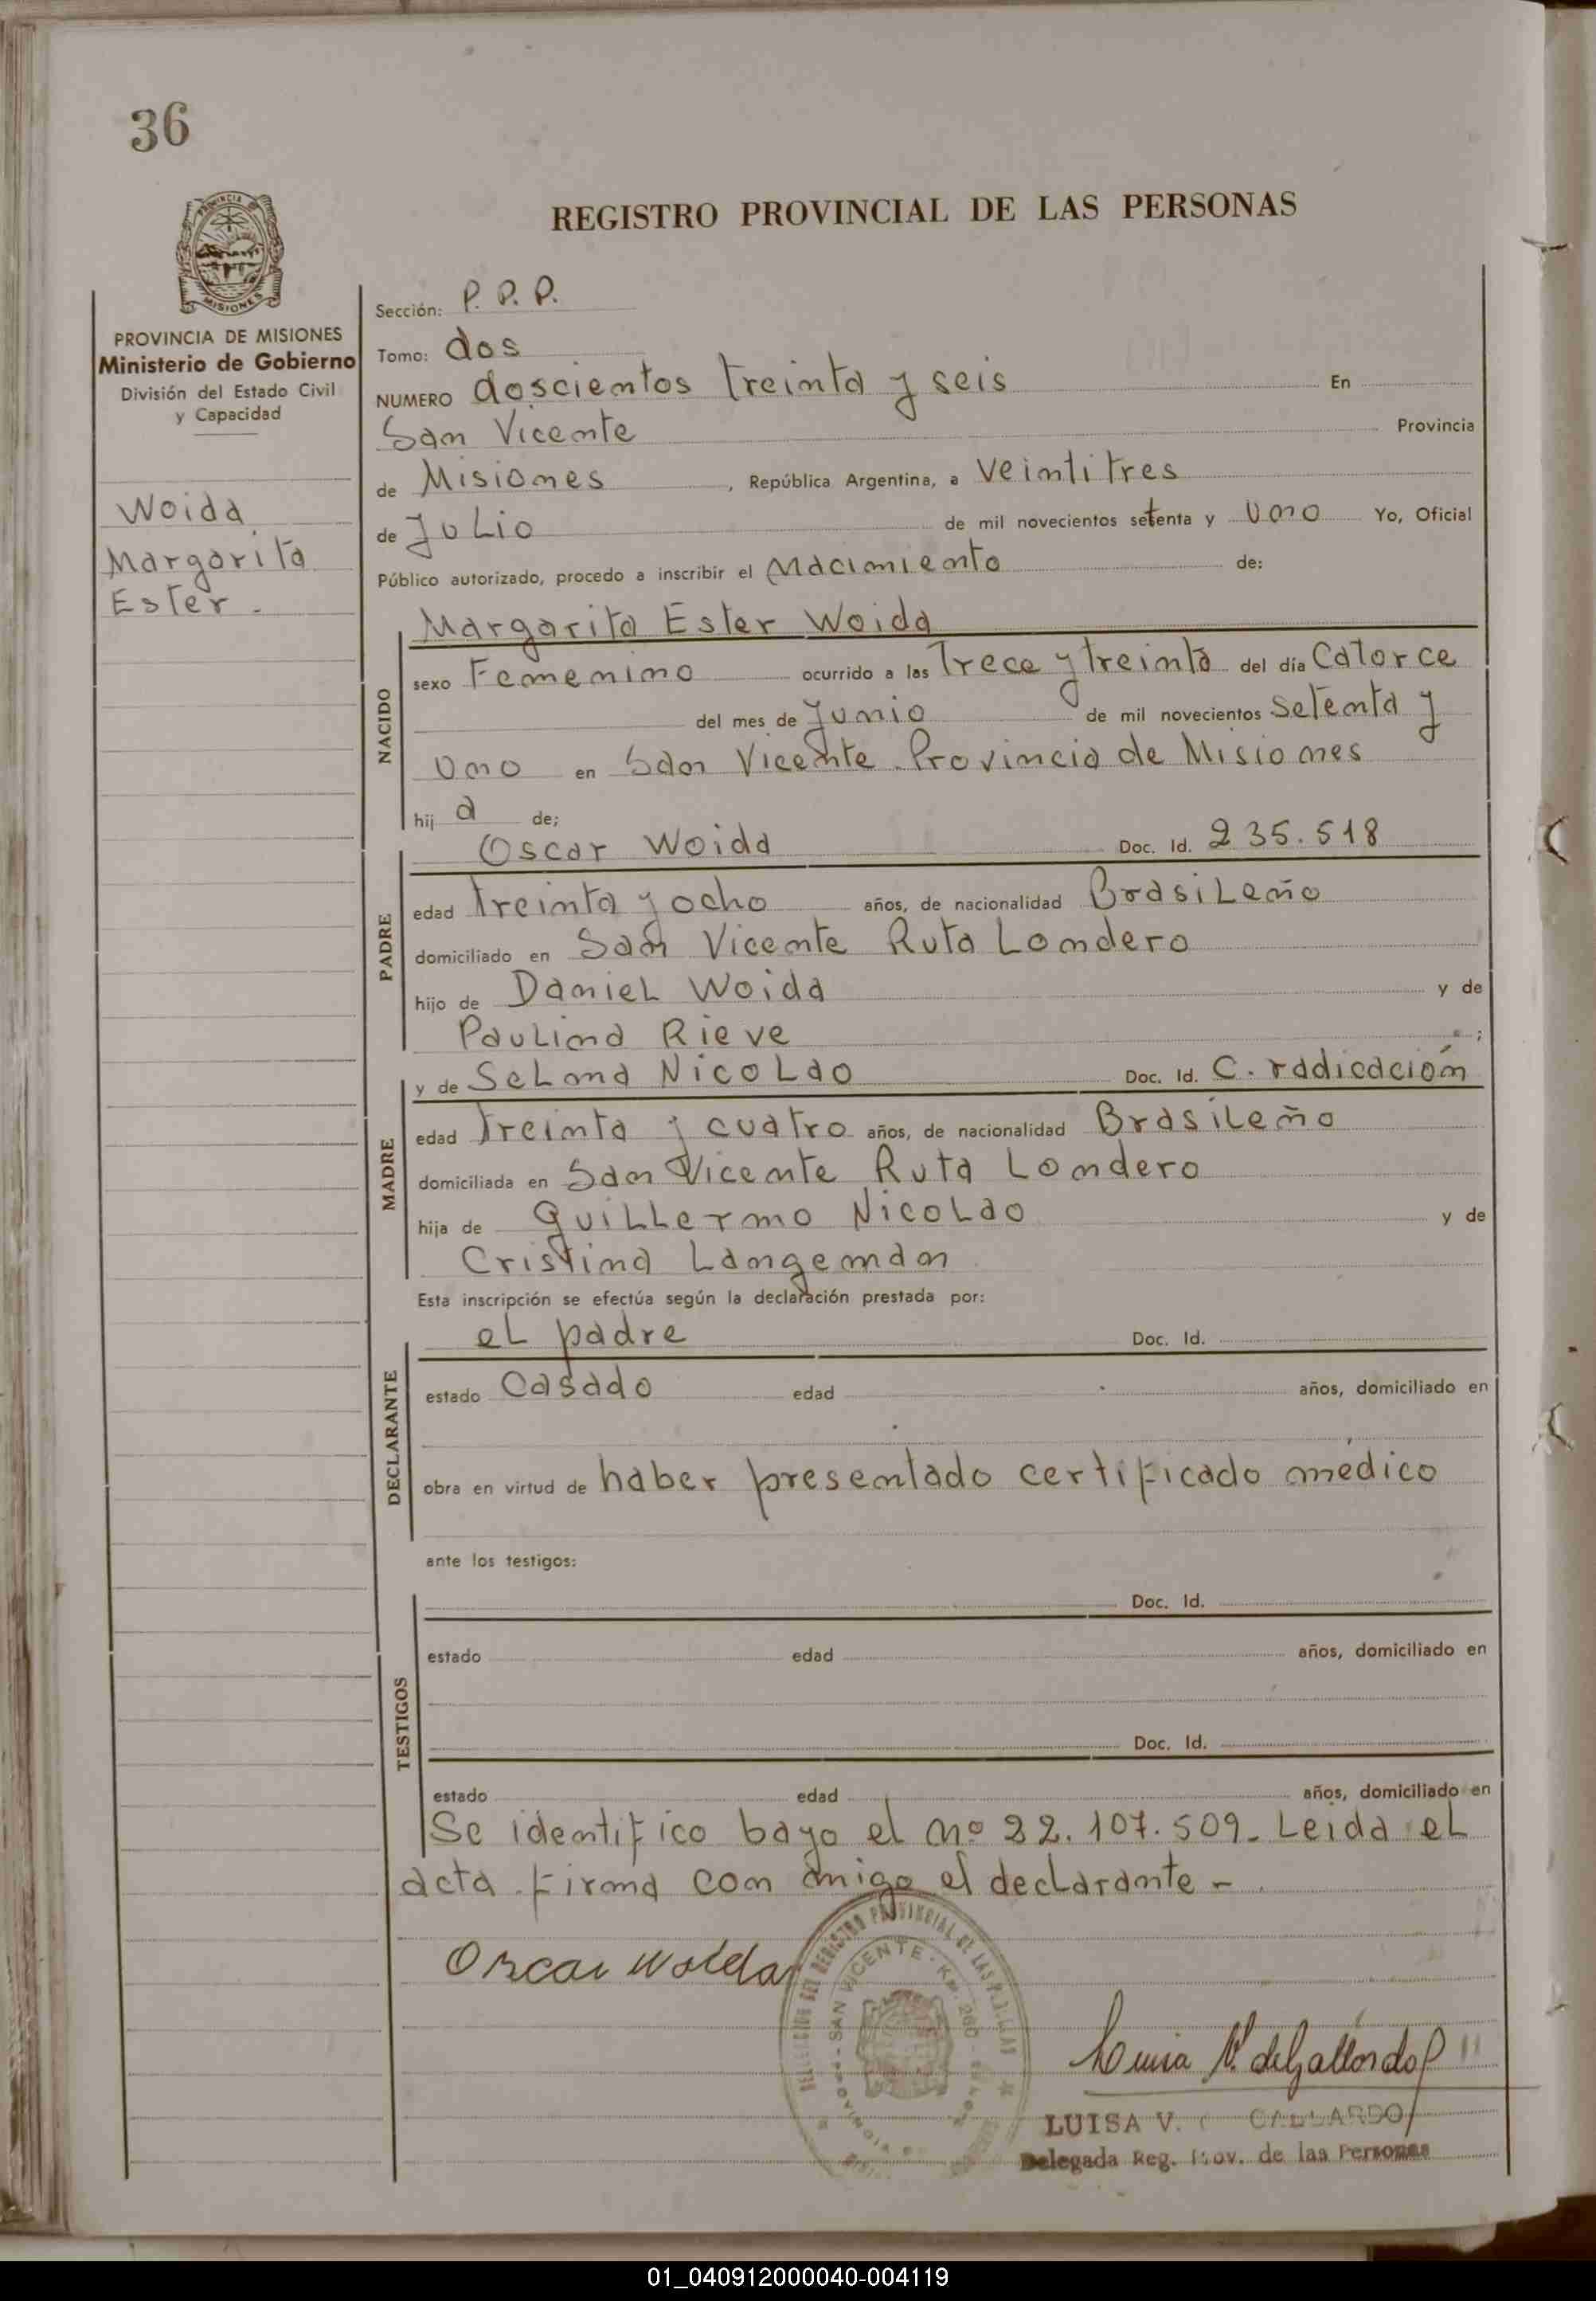 36
PROVINCIA
MISIONES
REGISTRO PROVINCIAL DE LAS PERSONAS
PROVINCIA DE MISIONES
Ministerio de Gobierno
División del Estado Civil
y Capacidad
Woida
Margarita
Ester.
Sección: P. P. P.
Tomo: dos
NUMERO doscientos treinta y seis En
San Vicente Provincia
de Misiones, República Argentina, a veintitres
de Julio de mil novecientos setenta y uno Yo, Oficial
Público autorizado, procedo a inscribir el nacimiento de:
NACIDO
Margarita Ester Woida
sexo Femenino ocurrido a las trece y treinta del día catorce
del mes de Junio de mil novecientos setenta y
uno en San Vicente Provincia de Misiones
hij a de;
PADRE
Oscar Woida Doc. Id. 235.518
edad treinta y ocho años, de nacionalidad Brasileño
domiciliado en San Vicente Ruta Londero
hijo de Daniel Woida y de
Paulina Rieve ;
MADRE
y de Selma Nicolao Doc. Id. C. radicación
edad treinta y cuatro años, de nacionalidad Brasileño
domiciliada en San Vicente Ruta Londero
hija de Guillermo Nicolao y de
Cristina Langeman
Esta inscripción se efectúa según la declaración prestada por:
DECLARANTE
el padre Doc. Id.
estado Casado edad años, domiciliado en
obra en virtud de haber presentado certificado médico
ante los testigos:
TESTIGOS
Doc. Id.
estado edad años, domiciliado en
Doc. Id.
estado edad años, domiciliado en
Se identifico bayo el nº 22.107.509. Leida el
acta firma con migo el declarante -
Oscar Woida
DEL REGISTRO PROVINCIAL DE LAS
SAN VICENTE - Km. 260
Luisa V. de Gallardo
LUISA V. GALLARDO
Delegada Reg. Prov. de las Personas
01_040912000040-004119